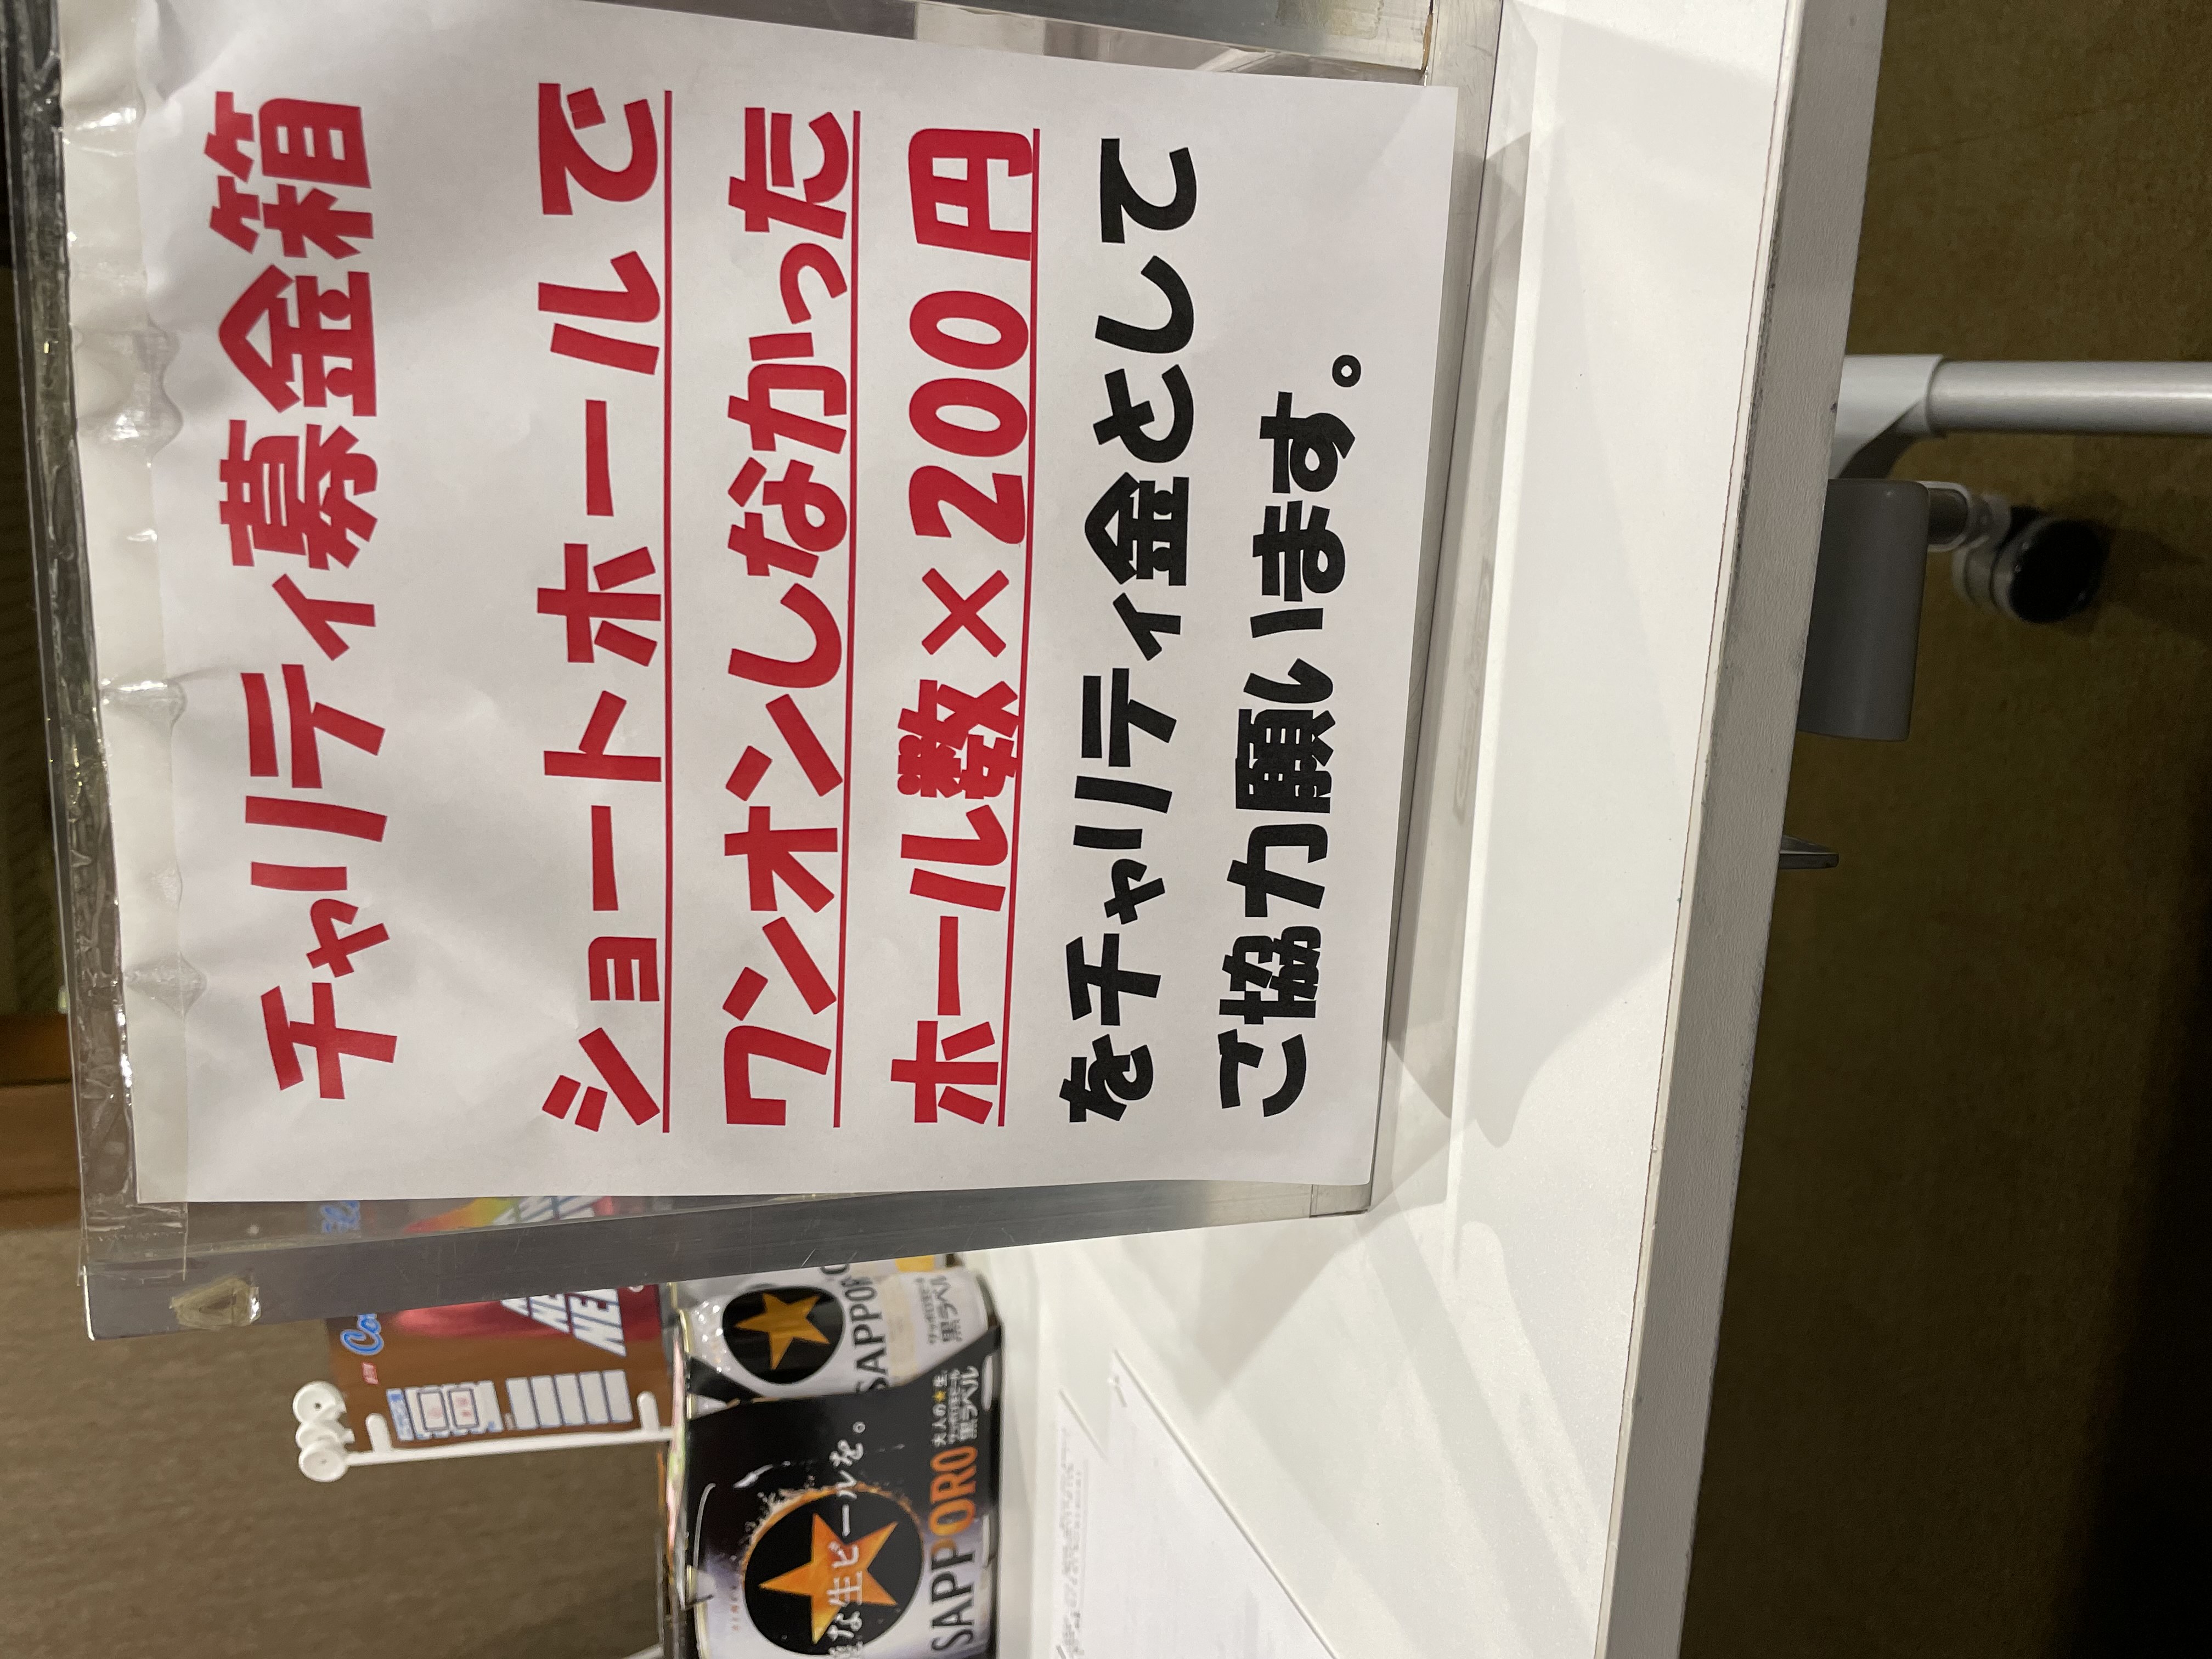 チャリティ募金箱
ショートホールで
ワンオンしなかった
ホール数×200円
をチャリティ金として
ご協力願います。
SAPPORO
黒ラベル
な生ビールを。
SAPPORO
大人の★生
黒ラベル